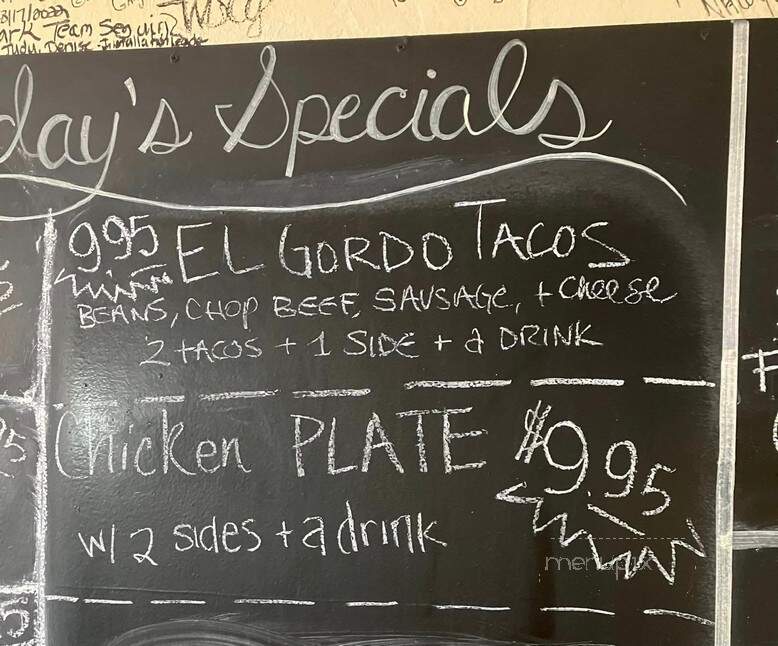 8/17/2022
ark Team Seguin
Judy, Denise -
day's Specials
995 EL GORDO TACOS
BEANS, CHOP BEEF, SAUSAGE, + cheese
2 tacos + 1 SIDE + a DRINK
Chicken PLATE $9.95
w/ 2 sides + a drink
menupix
5